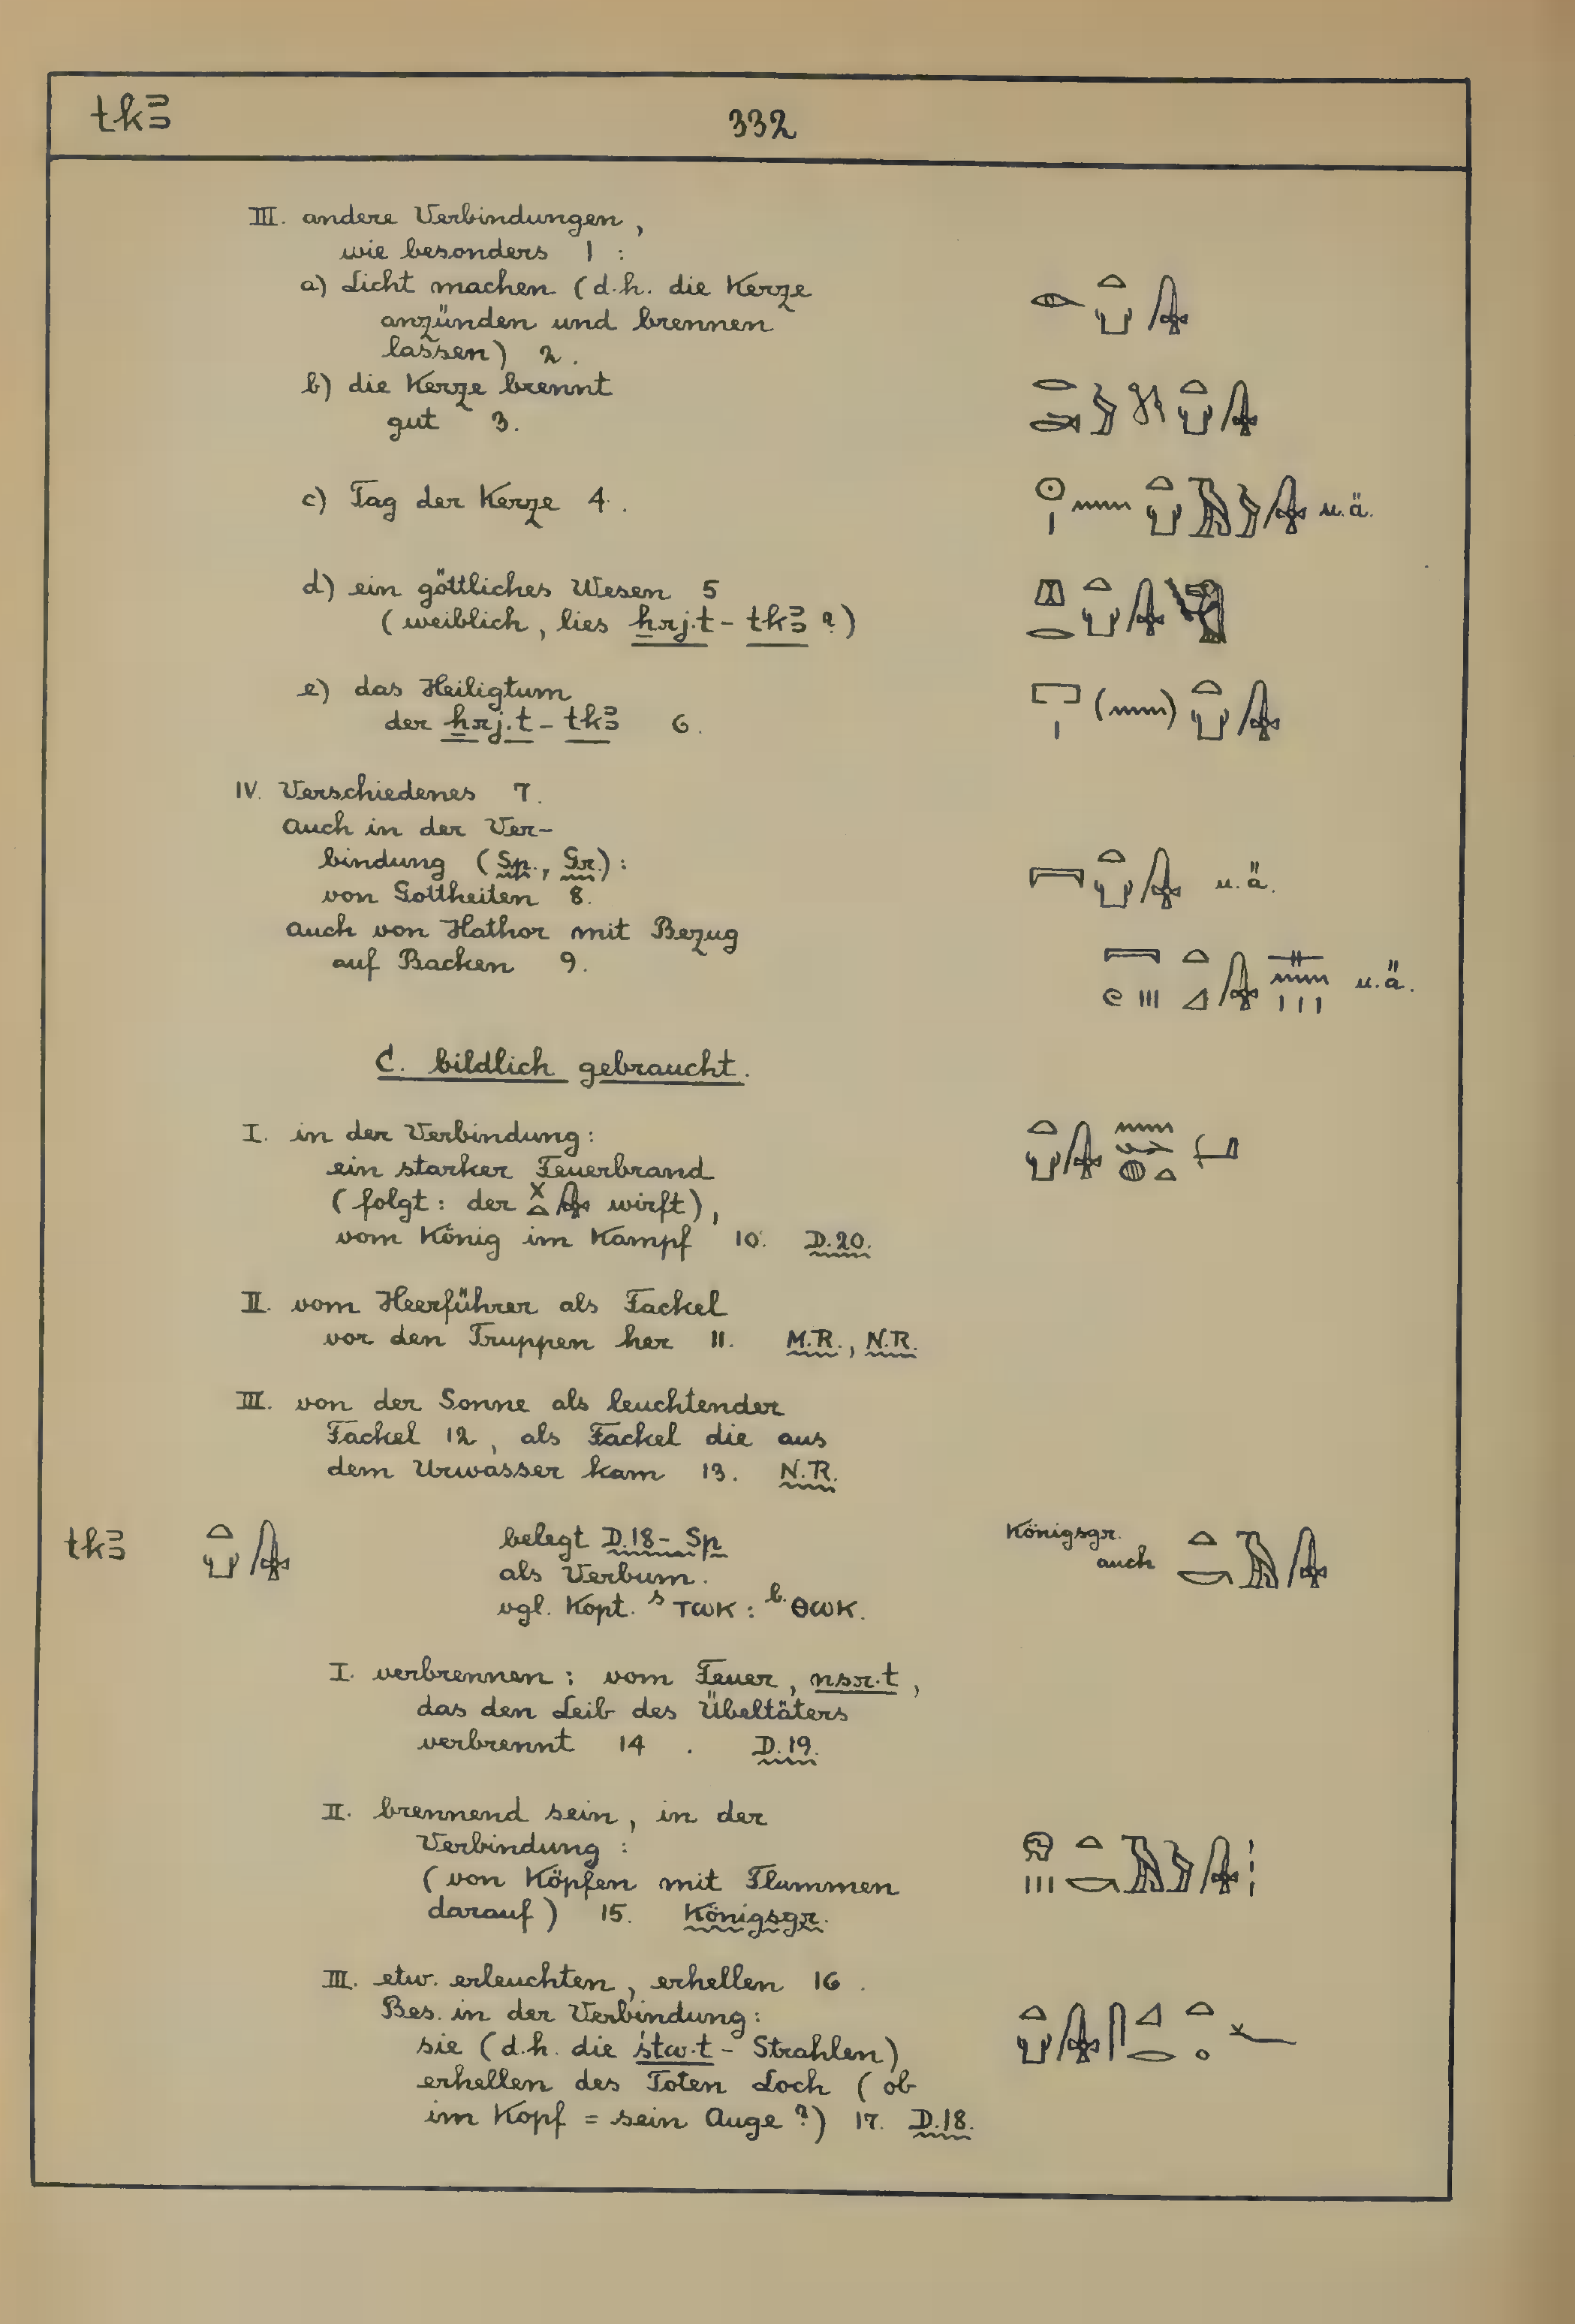 tkꜣ
332
III. andere Verbindungen,
wie besonders 1 :
a) Licht machen (d.h. die Kerze
anzünden und brennen
lassen) 2.
b) die Kerze brennt
gut 3.
c) Tag der Kerze 4.
u.ä.
d) ein göttliches Wesen 5
(weiblich, lies ẖrj.t - tkꜣ ?)
e) das Heiligtum
der ẖrj.t - tkꜣ 6.
IV. Verschiedenes 7.
auch in der Ver-
bindung (Sp., Gr.):
von Gottheiten 8.
u.ä.
auch von Hathor mit Bezug
auf Backen 9.
u.ä.
C. bildlich gebraucht.
I. in der Verbindung:
ein starker Feuerbrand
(folgt: der wirft),
vom König im Kampf 10. D.20.
II. vom Heerführer als Fackel
vor den Truppen her 11. M.R., N.R.
III. von der Sonne als leuchtender
Fackel 12, als Fackel die aus
dem Urwasser kam 13. N.R.
tkꜣ belegt D.18 - Sp
als Verbum.
vgl. Kopt. ˢ ⲧⲱⲕ : ᵇ· ⲑⲱⲕ.
Königsgr.
auch
I. verbrennen: vom Feuer, nsr.t,
das den Leib des Übeltäters
verbrennt 14. D.19.
II. brennend sein, in der
Verbindung :
(von Köpfen mit Flammen
darauf) 15. Königsgr.
III. etw. erleuchten, erhellen 16.
Bes. in der Verbindung:
sie (d.h. die śtw.t - Strahlen)
erhellen des Toten Loch (ob
im Kopf = sein Auge ?) 17. D.18.